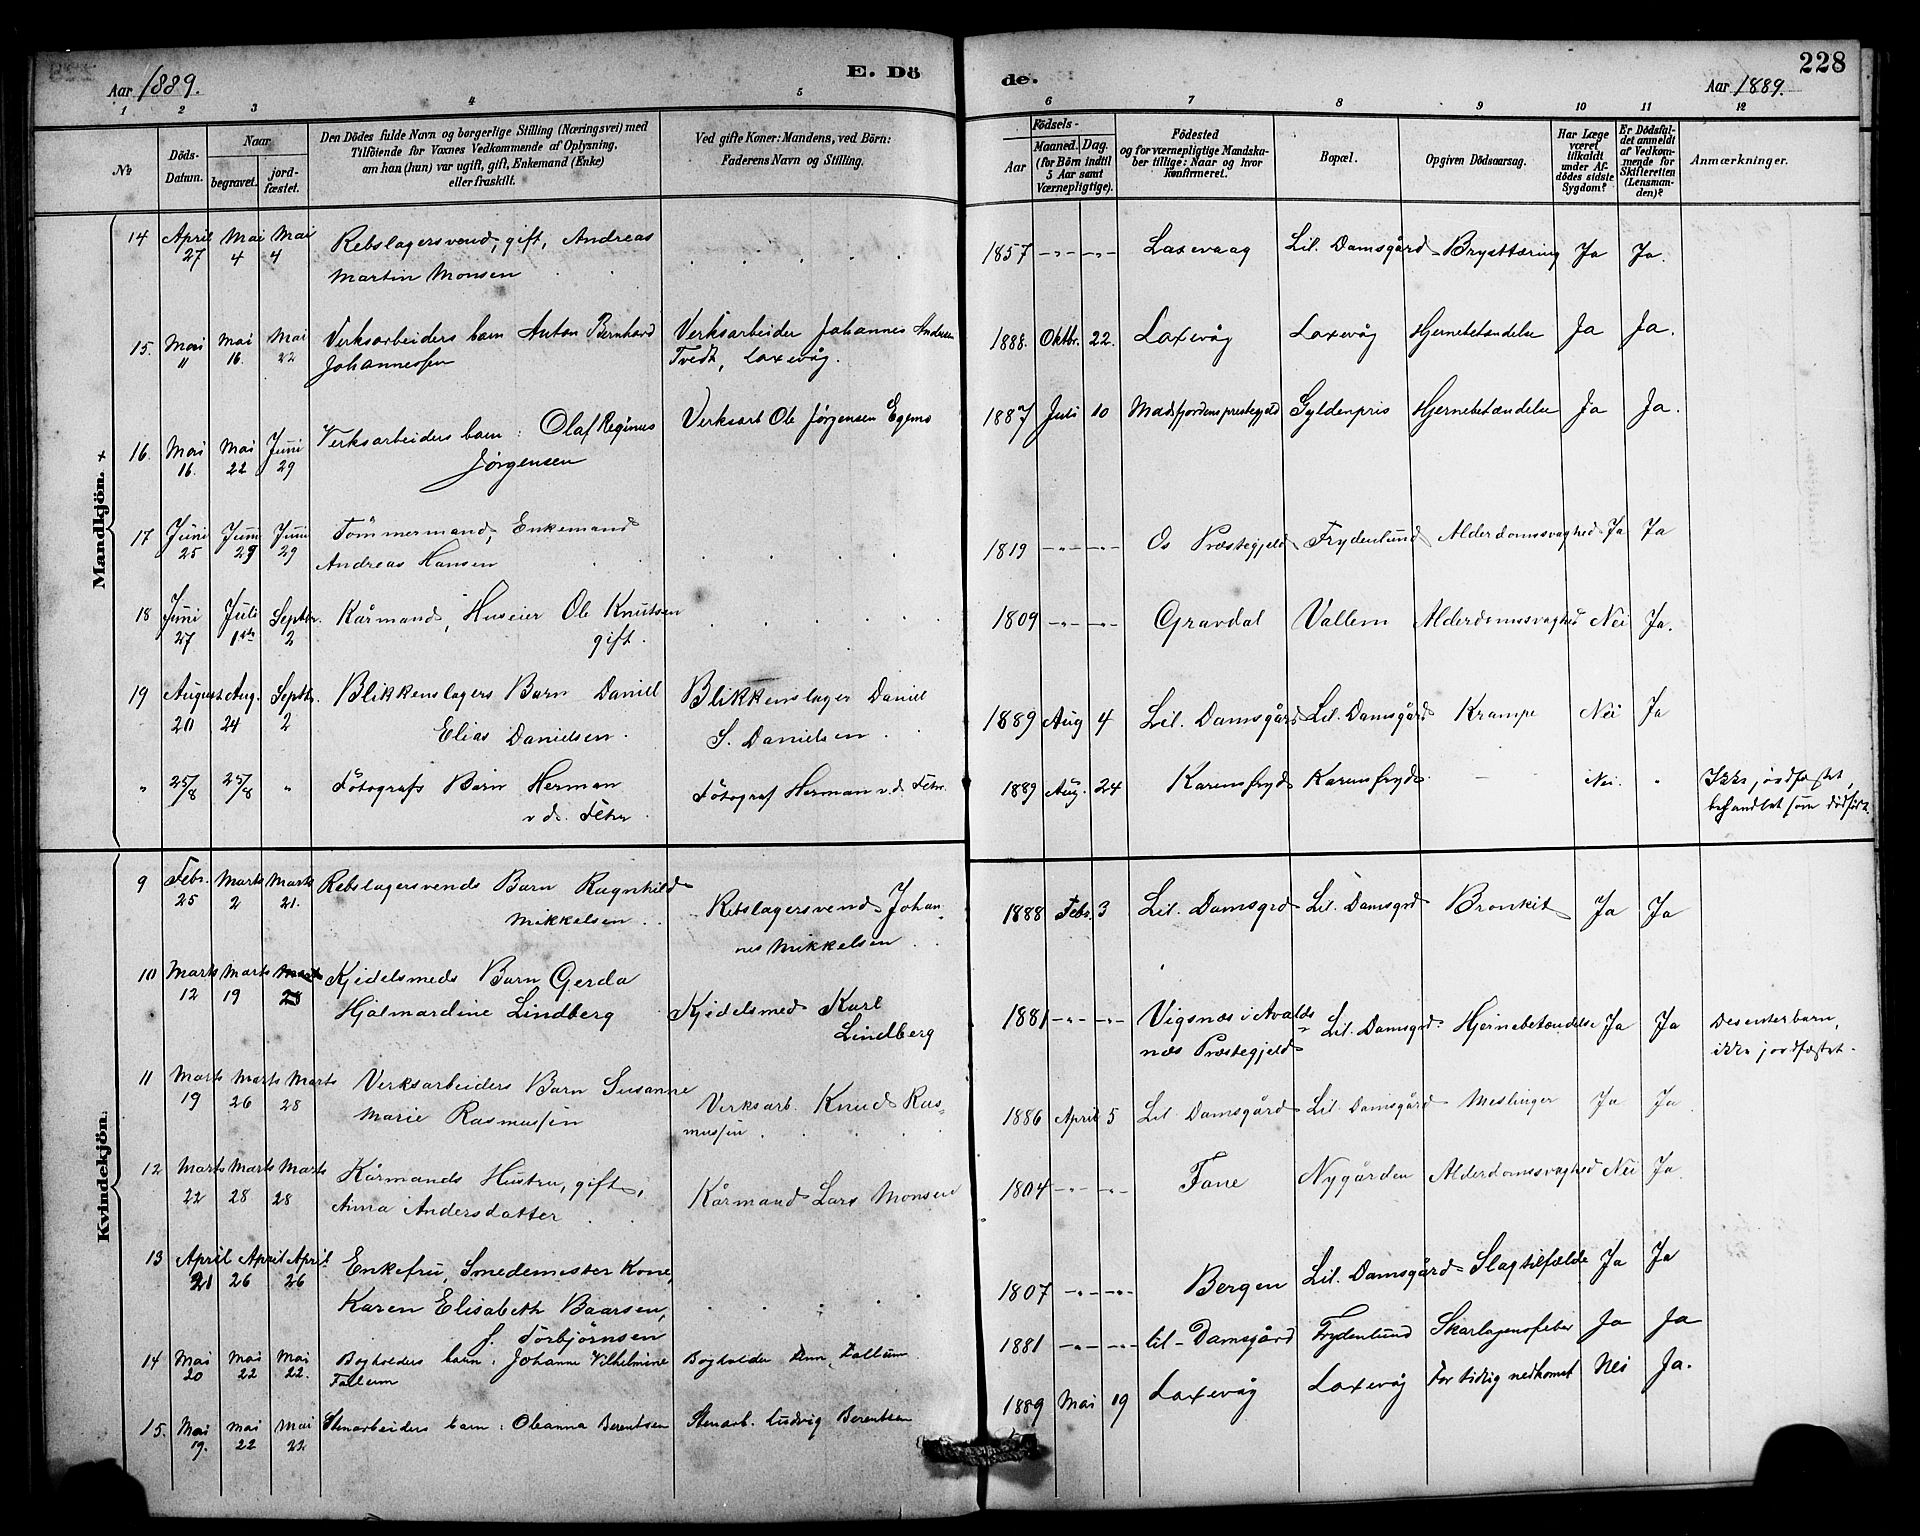 228
Aar 1889.
E. Dö
de.
Aar 1889.
1 2 3 4 5 6 7 8 9 10 11 12
№
Döds-
Datum.
Naar
begravet.
jord-
fæstet.
Den Dödes fulde Navn og borgerlige Stilling (Næringsvei) med
Tilföiende for Voxnes Vedkommende af Oplysning,
om han (hun) var ugift, gift, Enkemand (Enke)
eller fraskilt.
Ved gifte Koner: Mandens, ved Börn:
Faderens Navn og Stilling.
Födsels-
Aar
Maaned.
Dag.
(for Börn indtil
5 Aar samt
Værnepligtige).
Födested
og for værnepligtige Mandska-
ber tillige: Naar og hvor
konfirmeret.
Bopæl.
Opgiven Dödsaarsag.
Har Læge
været
tilkaldt
under Af-
dödes sidste
Sygdom?
Er Dödsfal-
det anmeldt
af Vedkom-
mende for
Skifteretten
(Lensman-
den)?
Anmærkninger.
Mandkjön. +
14 April 27 Mai 4 Mai 4 Rebslagersvend, gift, Andreas
Martin Monsen
1857 Laxevaag Lil. Damsgård Brysttæring Ja Ja.
15. Mai 11 Mai 16. Mai 22 Verksarbeiders barn Anton Bernhard
Johannessen
Verksarbeider Johannes Andersen
Tvedt, Laxevåg.
1888. Oktbr. 22. Laxevåg Laxevåg Hjernebetændelse Ja Ja.
16. Mai 16. Mai 22 Juni 29 Verksarbeiders barn: Olaf Reginus
Jørgensen
Verksarb Ole Jørgensen Egenes
1887 Juli 10 Gyldenpris Hjernebetændelse Ja Ja.
17 Juni 25 Juni 29 Juni 29 Tömmermand, Enkemand
Andreas Hansen
1819 Os Præstegjeld Frydenlund Alderdomssvaghed Ja Ja
18 Juni 27 Juli 1ste Septbr. 2 Kårmand, Huseier Ole Knutsen
gift.
1809 Gravdal Vallem Alderdomssvaghed Nei Ja.
19 August 20 Aug. 24 Septbr. 2 Blikkenslagers Barn Daniel
Elias Danielsen.
Blikkenslager Daniel
S. Danielsen
1889 Aug 4 Lil. Damsgård Lil. Damsgård Krampe Nei Ja
" 25/8 25/8 " Fotografs Barn Herman
v. d. Fehr.
Fotograf Herman v. d. Fehr.
1889 Aug. 24 Karensfryd Karensfryd. – Nei. "
Ikke jordfæstet,
behandlet som dödfödt.
Kvindekjön.
9 Febr. 25 Marts 2 Marts 21. Rebslagersvends Barn Ragnhild
Mikkelsen
Rebslagersvend Johan-
nes Mikkelsen
1888 Febr. 3 Lil. Damsgrd Lil. Damsgrd Bronkit Ja Ja
10 Marts 12 Marts 19 Kjedelsmeds Barn Gerda
Hjalmardine Lindberg
Kjedelsmed Karl
Lindberg
1881 Vigsnæs i Avalds-
næs Præstegjeld
Lil. Damsgrd. Hjernebetændelse Ja Ja
Desenterbarn,
ikke jordfæstet.
11 Marts 19 Marts 26 Marts 28 Verksarbeiders Barn Susanne
Marie Rasmussen
Verksarb. Knud Ras-
mussen
1886 April 5 Lil Damsgård Lil. Damsgård Meslinger Ja Ja
12 Marts 22 Marts 28 Marts 28 Kårmands Hustru, gift,
Anna Andersdatter
Kårmand Lars Monsen
1804 Fane Nygården Alderdomssvaghed Nei Ja
13 April 21 April 26 April 26 Enkefru, Smedemester Kone,
Karen Elisabeth Baarsen,
f. Torbjørnsen
1807 Bergen Lil. Damsgård Slagtilfælde Ja Ja
14 Mai 20 Mai 22 Mai 22. Bogholders barn: Johanne Vilhelmine
Fallum
Bogholder Fallum
1881 lil-Damsgård Frydenlund Skarlagensfeber Ja Ja
15. Mai 19. Mai 22 Mai 22 Stenarbeiders barn: Oleanna Berentsen
Stenarb. Ludvig Berentsen
1889 Mai 19 Laxevåg Laxevåg For tidlig nedkomst Nei Ja.